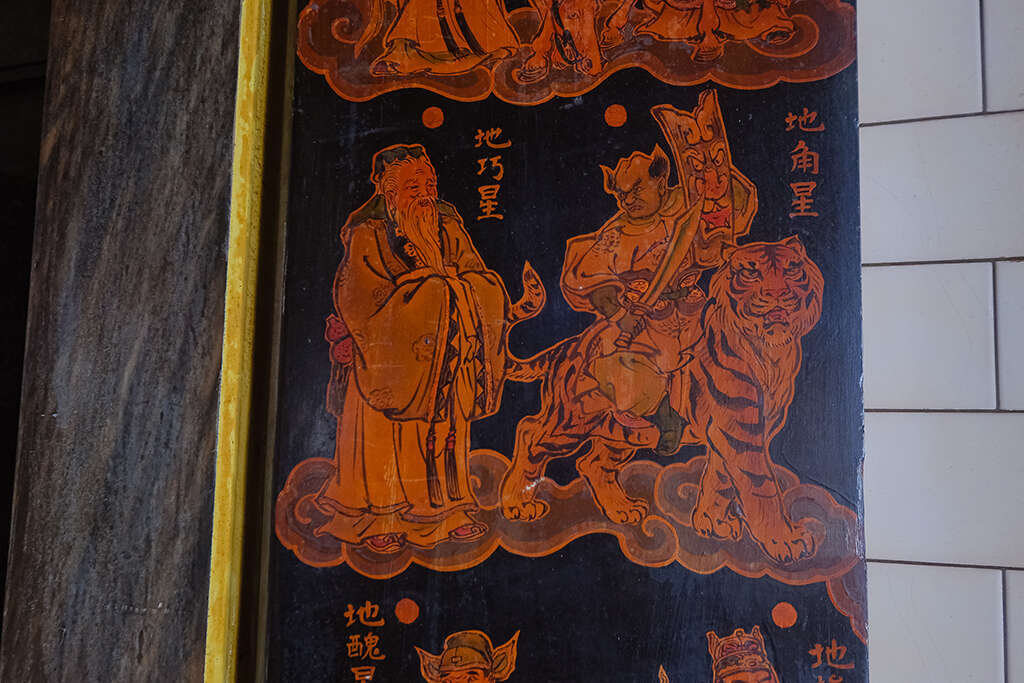 地巧星
地角星
地醜星
地